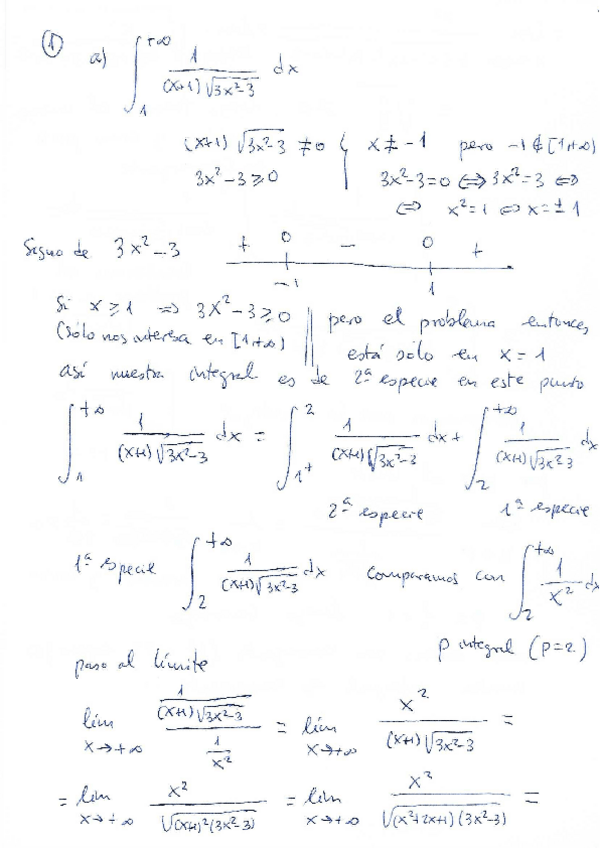 ① a) ∫₁^{+∞} 1/((x+1)√(3x²-3)) dx
(x+1)√(3x²-3) ≠ 0 { x ≠ -1 pero -1 ∉ [1,+∞)
3x²-3 ≥ 0 3x²-3=0 ⇔ 3x²=3 ⇔
⇔ x²=1 ⇔ x=±1
Signo de 3x²-3 + 0 - 0 +
-1 1
Si x ≥ 1 ⇒ 3x²-3 ≥ 0 || pero el problema entonces
(Sólo nos interesa en [1,+∞) está sólo en x = 1
así nuestra integral es de 2ª especie en este punto
∫₁^{+∞} 1/((x+1)√(3x²-3)) dx = ∫_{1⁺}^{2} 1/((x+1)√(3x²-3)) dx + ∫₂^{+∞} 1/((x+1)√(3x²-3)) dx
2ª especie 1ª especie
1ª especie ∫₂^{+∞} 1/((x+1)√(3x²-3)) dx comparamos con ∫₂^{+∞} 1/x² dx
p integral (p=2)
paso al límite
lím_{x→+∞} (1/((x+1)√(3x²-3)))/(1/x²) = lím_{x→+∞} x²/((x+1)√(3x²-3)) =
= lím_{x→+∞} x²/√((x+1)²(3x²-3)) = lím_{x→+∞} x²/√((x²+2x+1)(3x²-3)) =